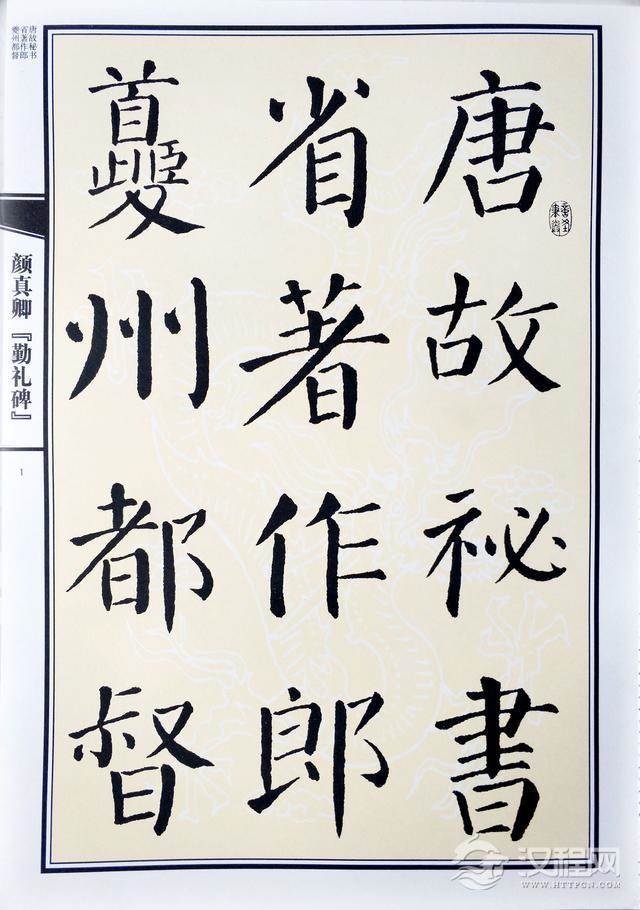 唐故祕書
省著作郎
夔州都督
唐故秘书
省著作郎
夔州都督
颜真卿『勤礼碑』
1
汉程网
WWW.HTTPCN.COM